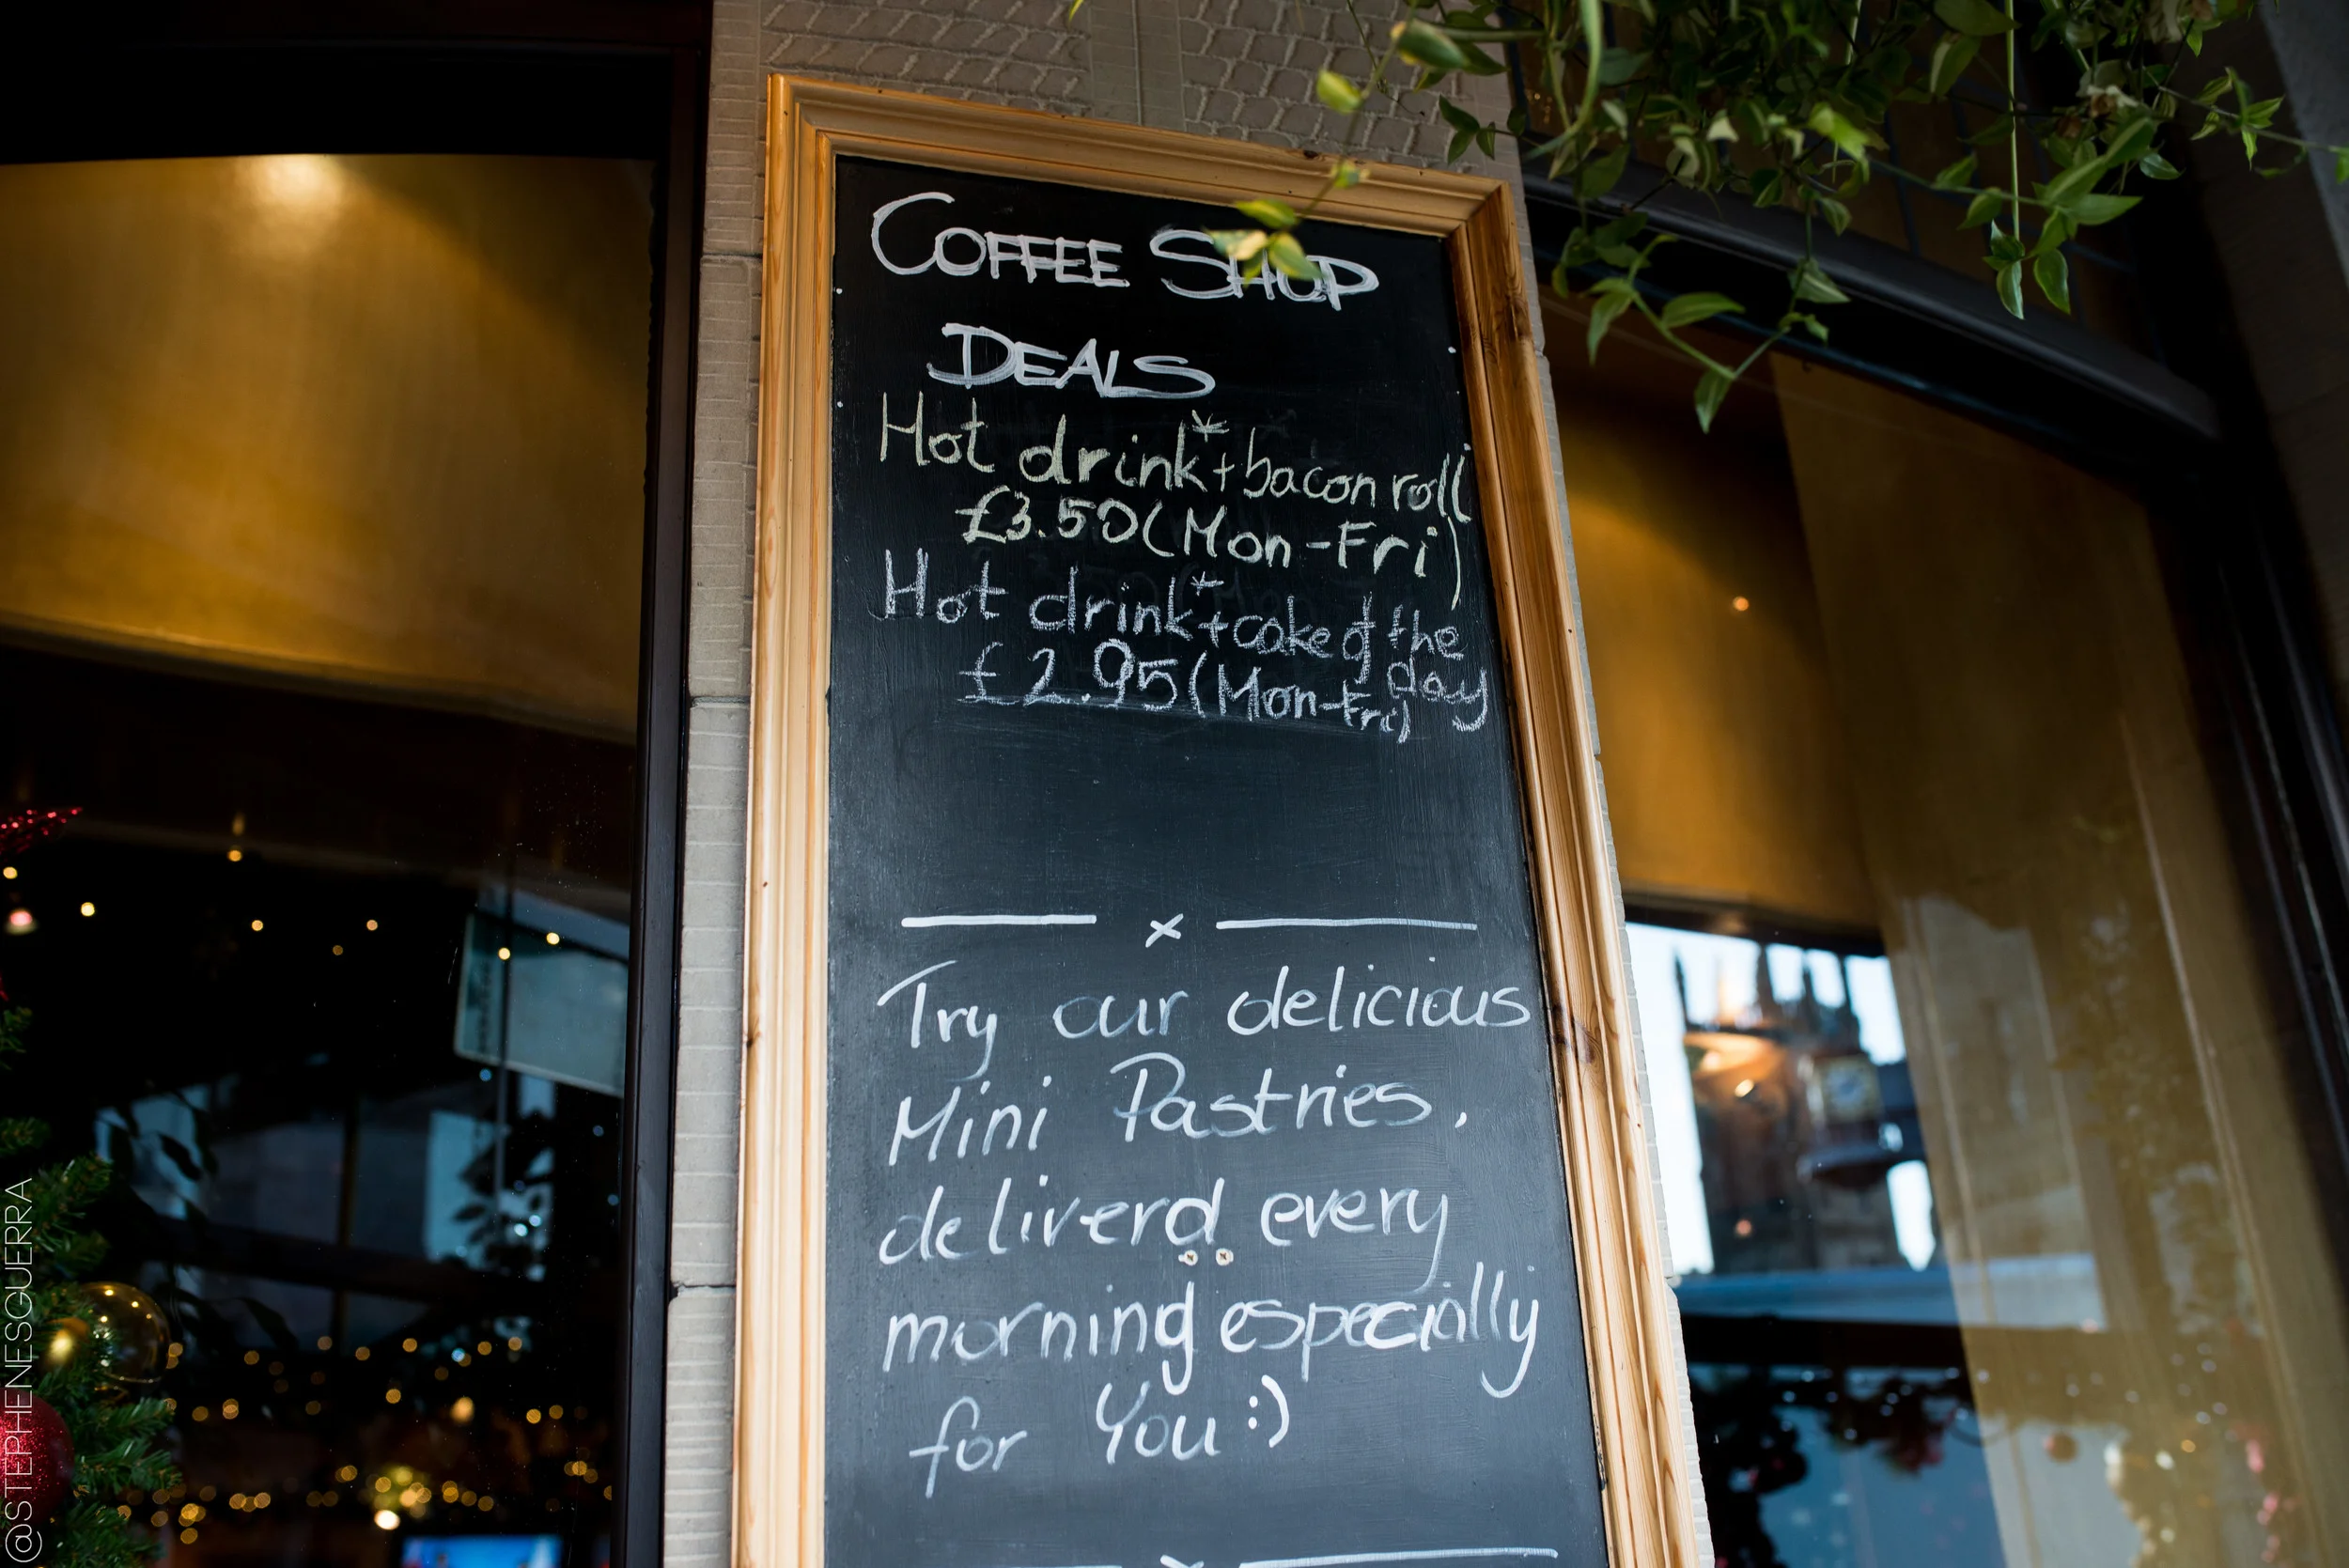 COFFEE SHOP
DEALS
Hot drink*+bacon roll
£3.50(Mon-Fri)
Hot drink*+cake of the
day
£2.95(Mon-Fri)
x
Try our delicious
Mini Pastries,
deliverd every
morning especially
for You :)
@STEPHENESGUERRA